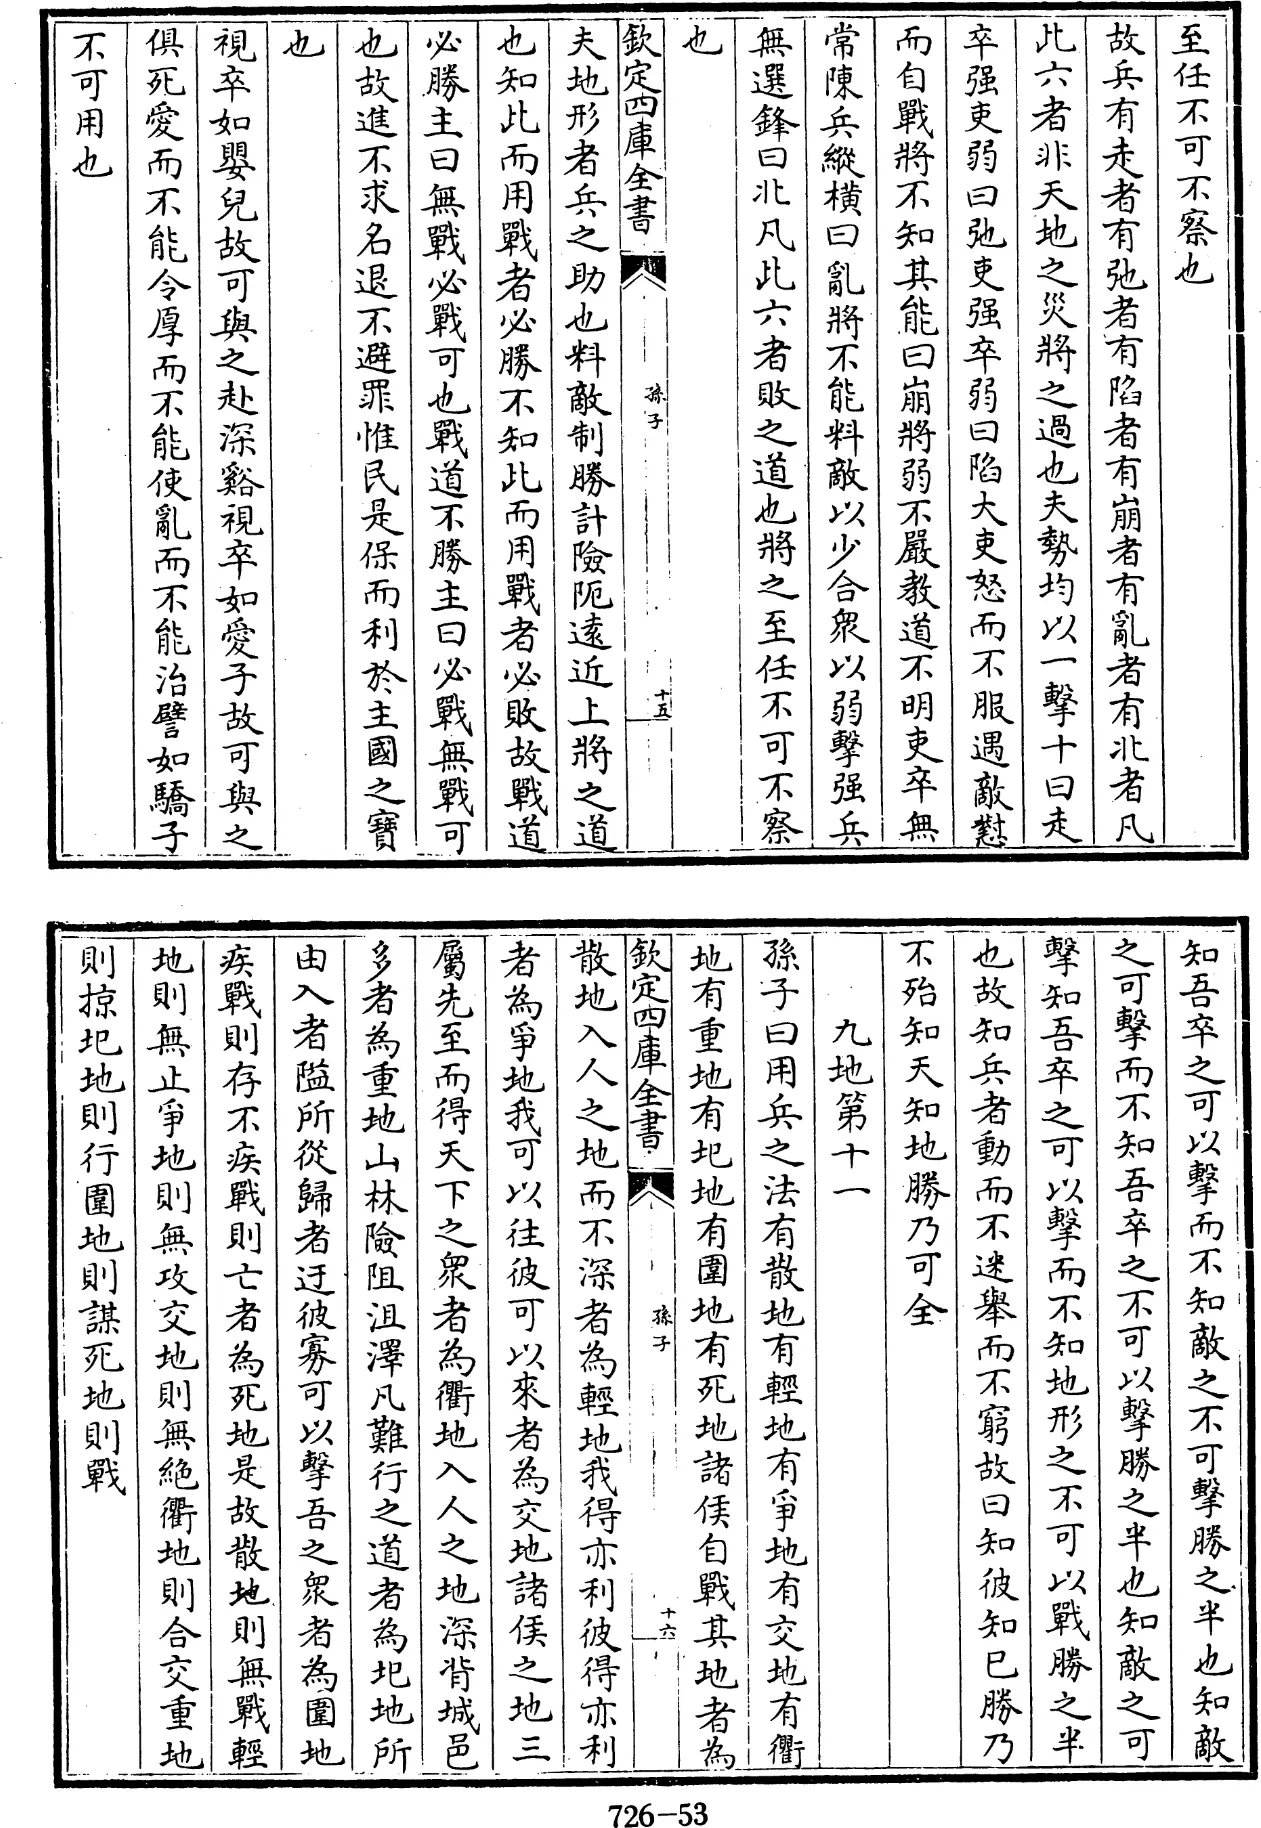 至任不可不察也
故兵有走者有弛者有陷者有崩者有亂者有北者凡
此六者非天地之災將之過也夫勢均以一擊十曰走
卒强吏弱曰弛吏强卒弱曰陷大吏怒而不服遇敵懟
而自戰將不知其能曰崩將弱不嚴教道不明吏卒無
常陳兵縱橫曰亂將不能料敵以少合衆以弱擊强兵
無選鋒曰北凡此六者敗之道也將之至任不可不察
也
欽定四庫全書
孫子
十五
夫地形者兵之助也料敵制勝計險阨遠近上將之道
也知此而用戰者必勝不知此而用戰者必敗故戰道
必勝主曰無戰必戰可也戰道不勝主曰必戰無戰可
也故進不求名退不避罪惟民是保而利於主國之寶
也
視卒如嬰兒故可與之赴深谿視卒如愛子故可與之
俱死愛而不能令厚而不能使亂而不能治譬如驕子
不可用也
知吾卒之可以擊而不知敵之不可擊勝之半也知敵
之可擊而不知吾卒之不可以擊勝之半也知敵之可
擊知吾卒之可以擊而不知地形之不可以戰勝之半
也故知兵者動而不迷舉而不窮故曰知彼知已勝乃
不殆知天知地勝乃可全
九地第十一
孫子曰用兵之法有散地有輕地有爭地有交地有衢
地有重地有圯地有圍地有死地諸侯自戰其地者為
欽定四庫全書
孫子
十六
散地入人之地而不深者為輕地我得亦利彼得亦利
者為爭地我可以往彼可以來者為交地諸侯之地三
屬先至而得天下之衆者為衢地入人之地深背城邑
多者為重地山林險阻沮澤凡難行之道者為圯地所
由入者隘所從歸者迂彼寡可以擊吾之衆者為圍地
疾戰則存不疾戰則亡者為死地是故散地則無戰輕
地則無止爭地則無攻交地則無絕衢地則合交重地
則掠圯地則行圍地則謀死地則戰
726-53